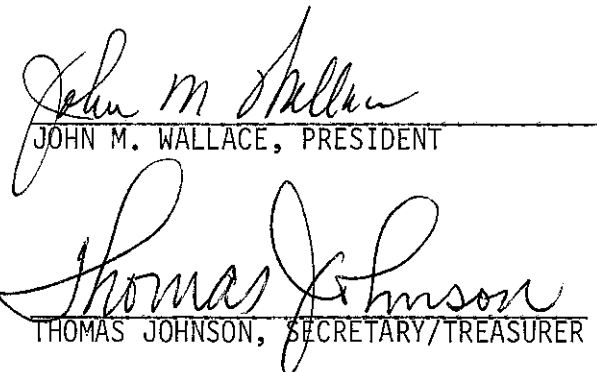 John M Wallace
JOHN M. WALLACE, PRESIDENT
Thomas Johnson
THOMAS JOHNSON, SECRETARY/TREASURER